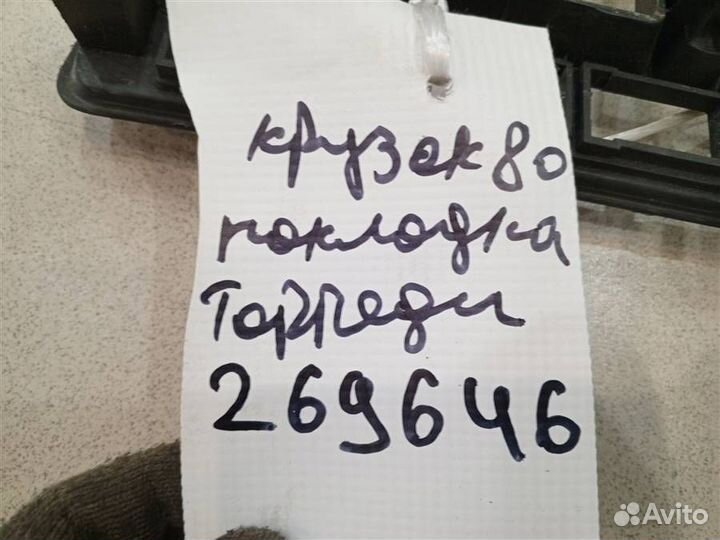 крузак 80
накладка
Торпеды
269646
Avito